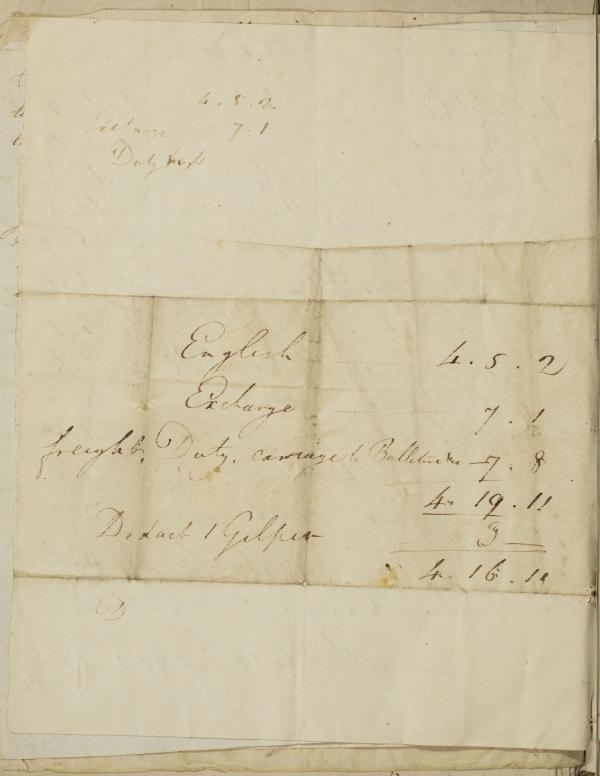 4 . 5 . 2
Exchange 7 . 1
Duty
English 4 . 5 . 2
Exchange 7 . 1
freight, Duty, carriage to 7 . 8
4 . 19 . 11
Deduct 1 3
4 . 16 . 11
D